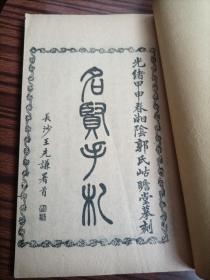 光緒甲申春湘陰郭氏岵瞻堂摹刻
名賢手札
長沙王先謙署首